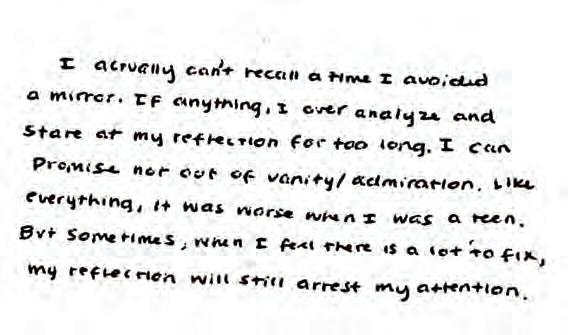 I actually can't recall a time I avoided
a mirror. If anything, I over analyze and
stare at my reflection for too long. I can
promise not out of vanity/admiration. Like
everything, it was worse when I was a teen.
But sometimes, when I feel there is a lot to fix,
my reflection will still arrest my attention.